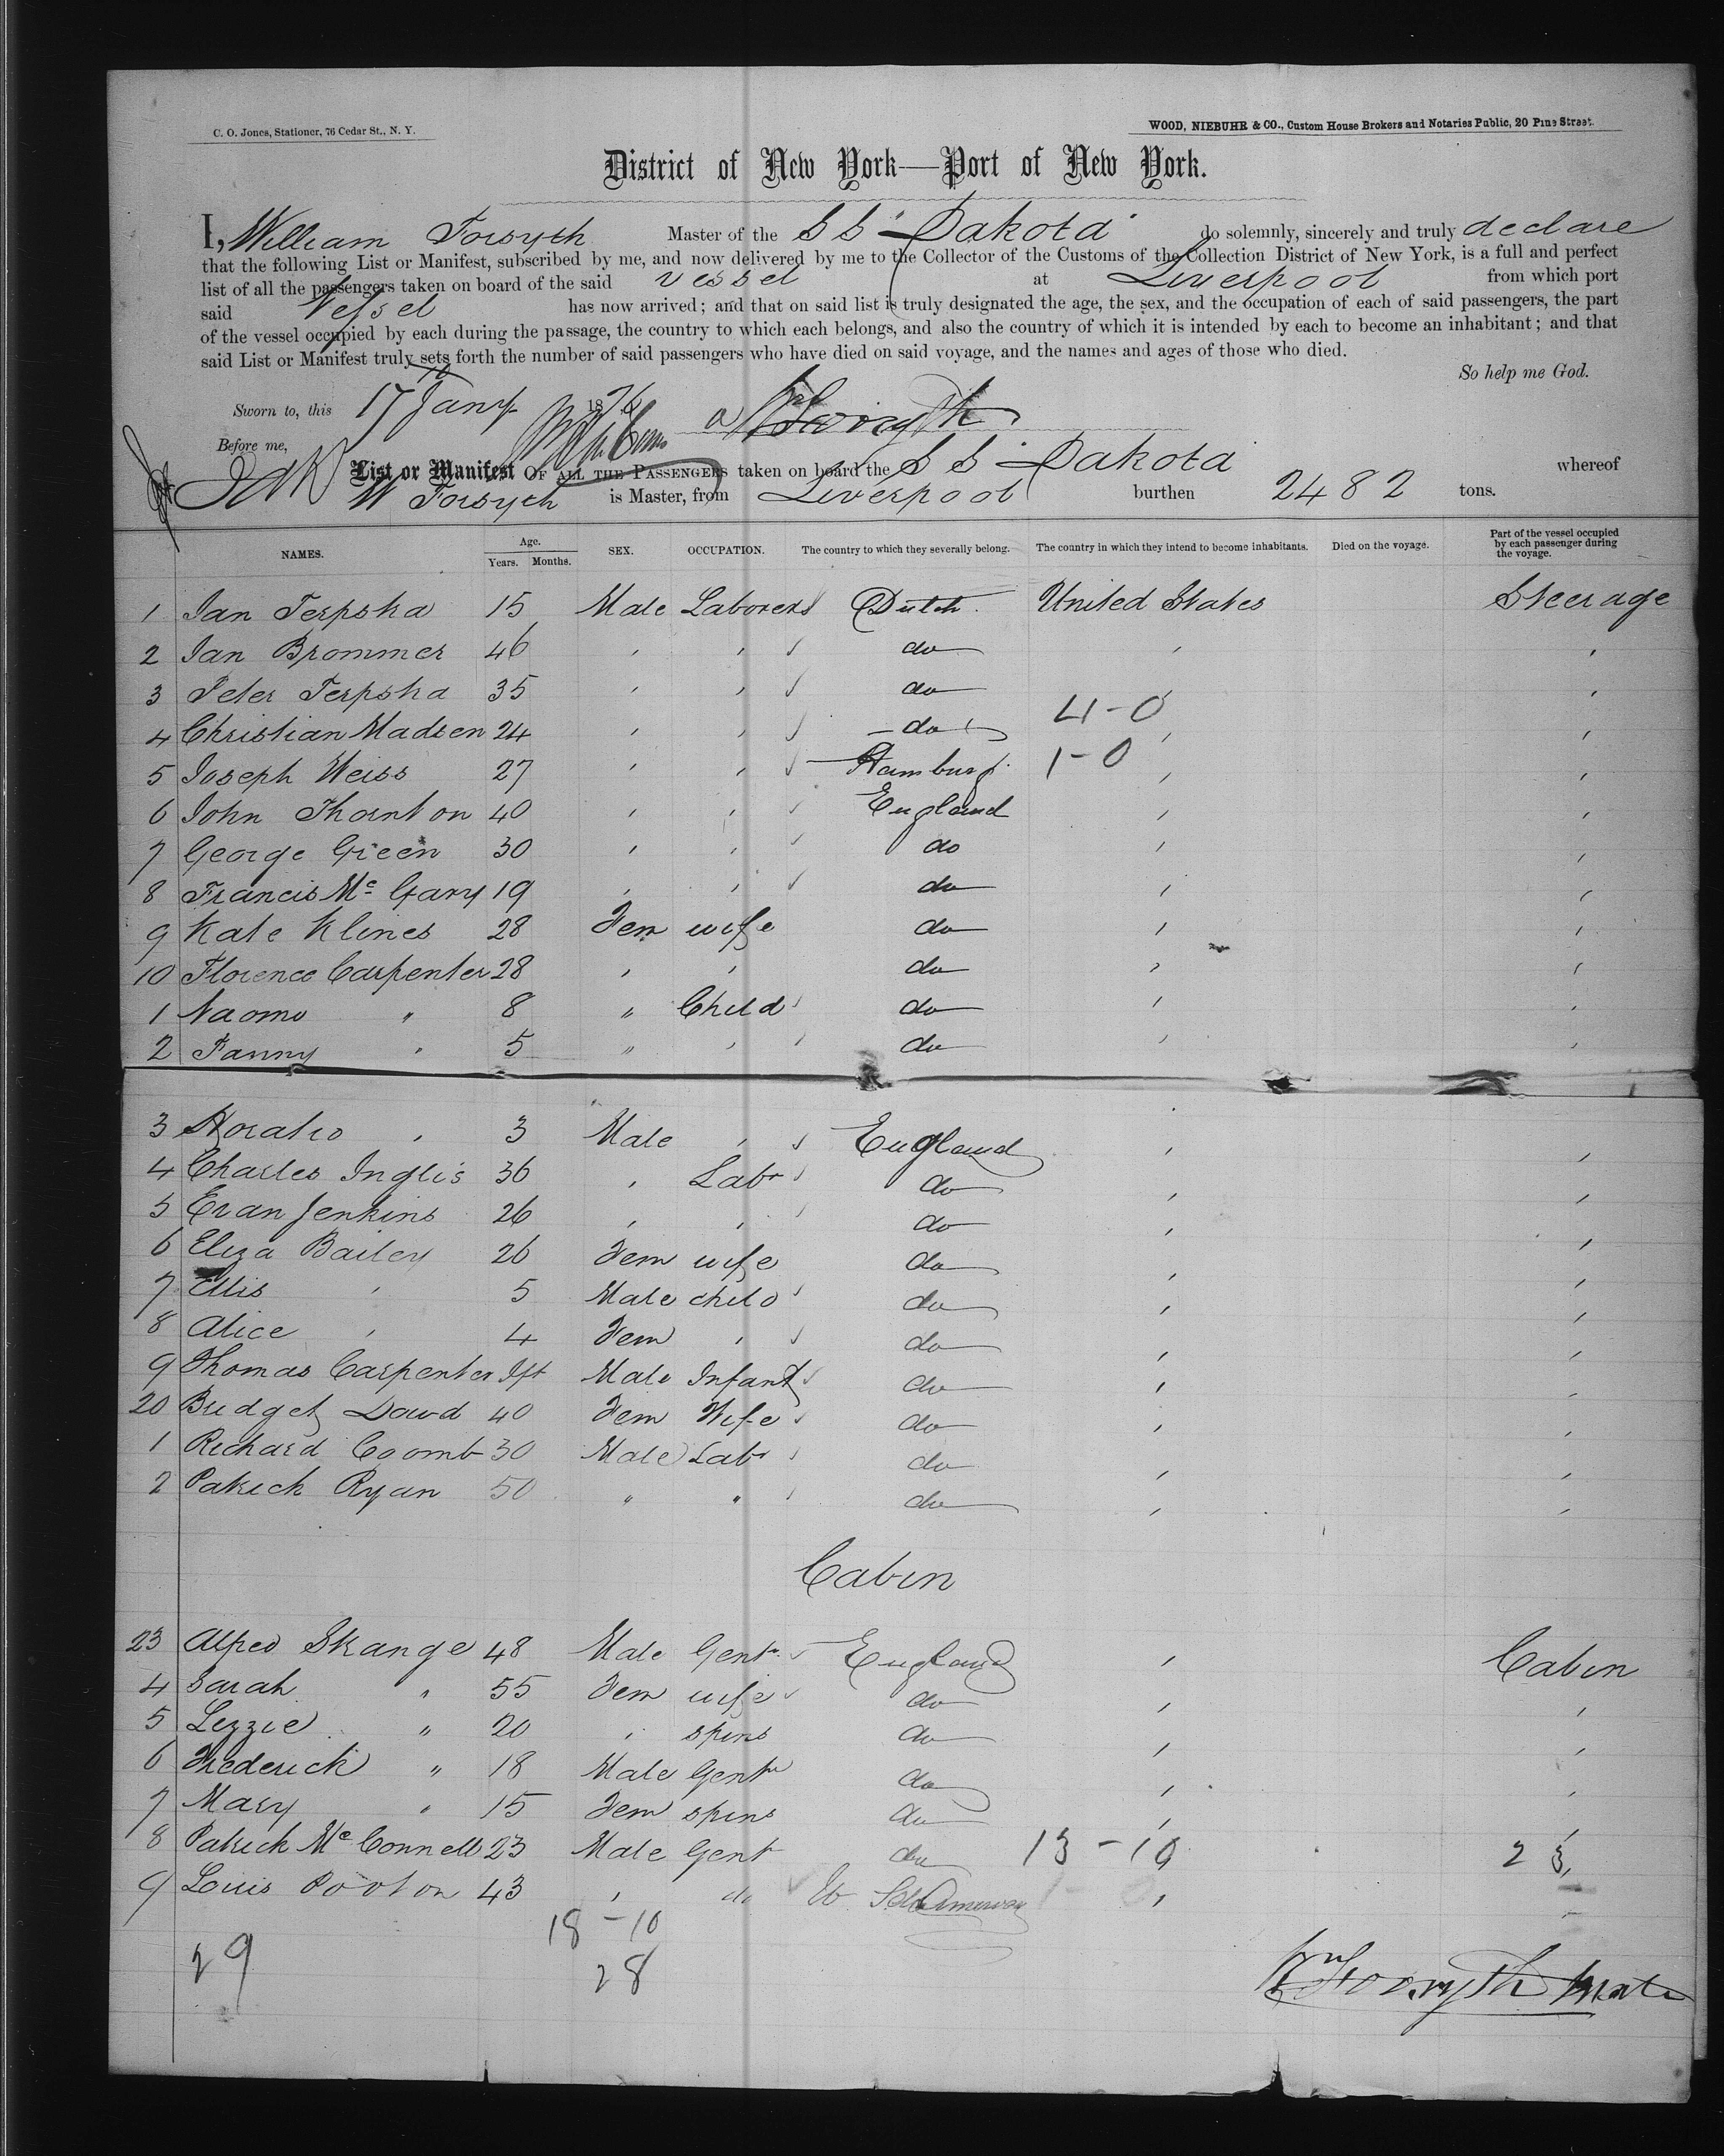 C. O. Jones, Stationer, 76 Cedar St., N. Y.
WOOD, NIEBUHR & CO., Custom House Brokers and Notaries Public, 20 Pine Street.
District of New York—Port of New York.
I, William Forsyth Master of the S S "Dakota" do solemnly, sincerely and truly declare
that the following List or Manifest, subscribed by me, and now delivered by me to the Collector of the Customs of the Collection District of New York, is a full and perfect
list of all the passengers taken on board of the said vessel at Liverpool from which port
said Vessel has now arrived; and that on said list is truly designated the age, the sex, and the occupation of each of said passengers, the part
of the vessel occupied by each during the passage, the country to which each belongs, and also the country of which it is intended by each to become an inhabitant; and that
said List or Manifest truly sets forth the number of said passengers who have died on said voyage, and the names and ages of those who died.
So help me God.
Sworn to, this 17th Jany 1876 Wm Forsyth
Before me,
List or Manifest OF ALL THE PASSENGERS taken on board the S S Dakota whereof
W Forsyth is Master, from Liverpool burthen 2482 tons.
NAMES. Age. Years. Months. SEX. OCCUPATION. The country to which they severally belong. The country in which they intend to become inhabitants. Died on the voyage. Part of the vessel occupied by each passenger during the voyage.
1 Jan Terpska 15 Male Laborers Dutch United States Steerage
2 Jan Brommer 46 " " do " "
3 Peter Terpska 35 " " do " "
4 Christian Madsen 24 " " do 4-0 " "
5 Joseph Weiss 27 " " Hamburg 1-0 " "
6 John Thornton 40 " " England " "
7 George Green 30 " " do " "
8 Francis Mc Gary 19 " " do " "
9 Kate Klines 28 Fem wife do " "
10 Florence Carpenter 28 " " do " "
1 Naomo " 8 " Child do " "
2 Fanny " 5 " " do " "
3 Horatio " 3 Male " England " "
4 Charles Inglis 36 " Labr do " "
5 Evan Jenkins 26 " " do " "
6 Eliza Bailey 26 Fem wife do " "
7 Ellis " 5 Male child do " "
8 Alice " 4 Fem " do " "
9 Thomas Carpenter Ift Male Infant do " "
20 Bridget Dowd 40 Fem Wife do " "
1 Richard Coomb 30 Male Labr do " "
2 Patrick Ryan 50 " " do " "
Cabin
23 Alfred Skange 48 Male Gentn England " Cabin
4 Sarah " 55 Fem wife do " "
5 Lizzie " 20 " spins do " "
6 Frederick " 18 Male Gentn do " "
7 Mary " 15 Fem spins do " "
8 Patrick Mc Connell 23 Male Gent do 13-10 " 23
9 Louis Pooton 43 " do "
18-10
29
28
Wm Forsyth